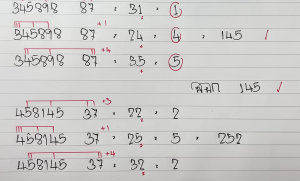 345898 87 · 31 · 1
+1
345898 87 · 24 · 4 · 145 /
+4
345898 87 · 35 · 5
145 ✓
+3
458145 37 · 22 · 2
+1
458145 37 · 25 · 5 · 252
+4
458145 37 · 32 · 2